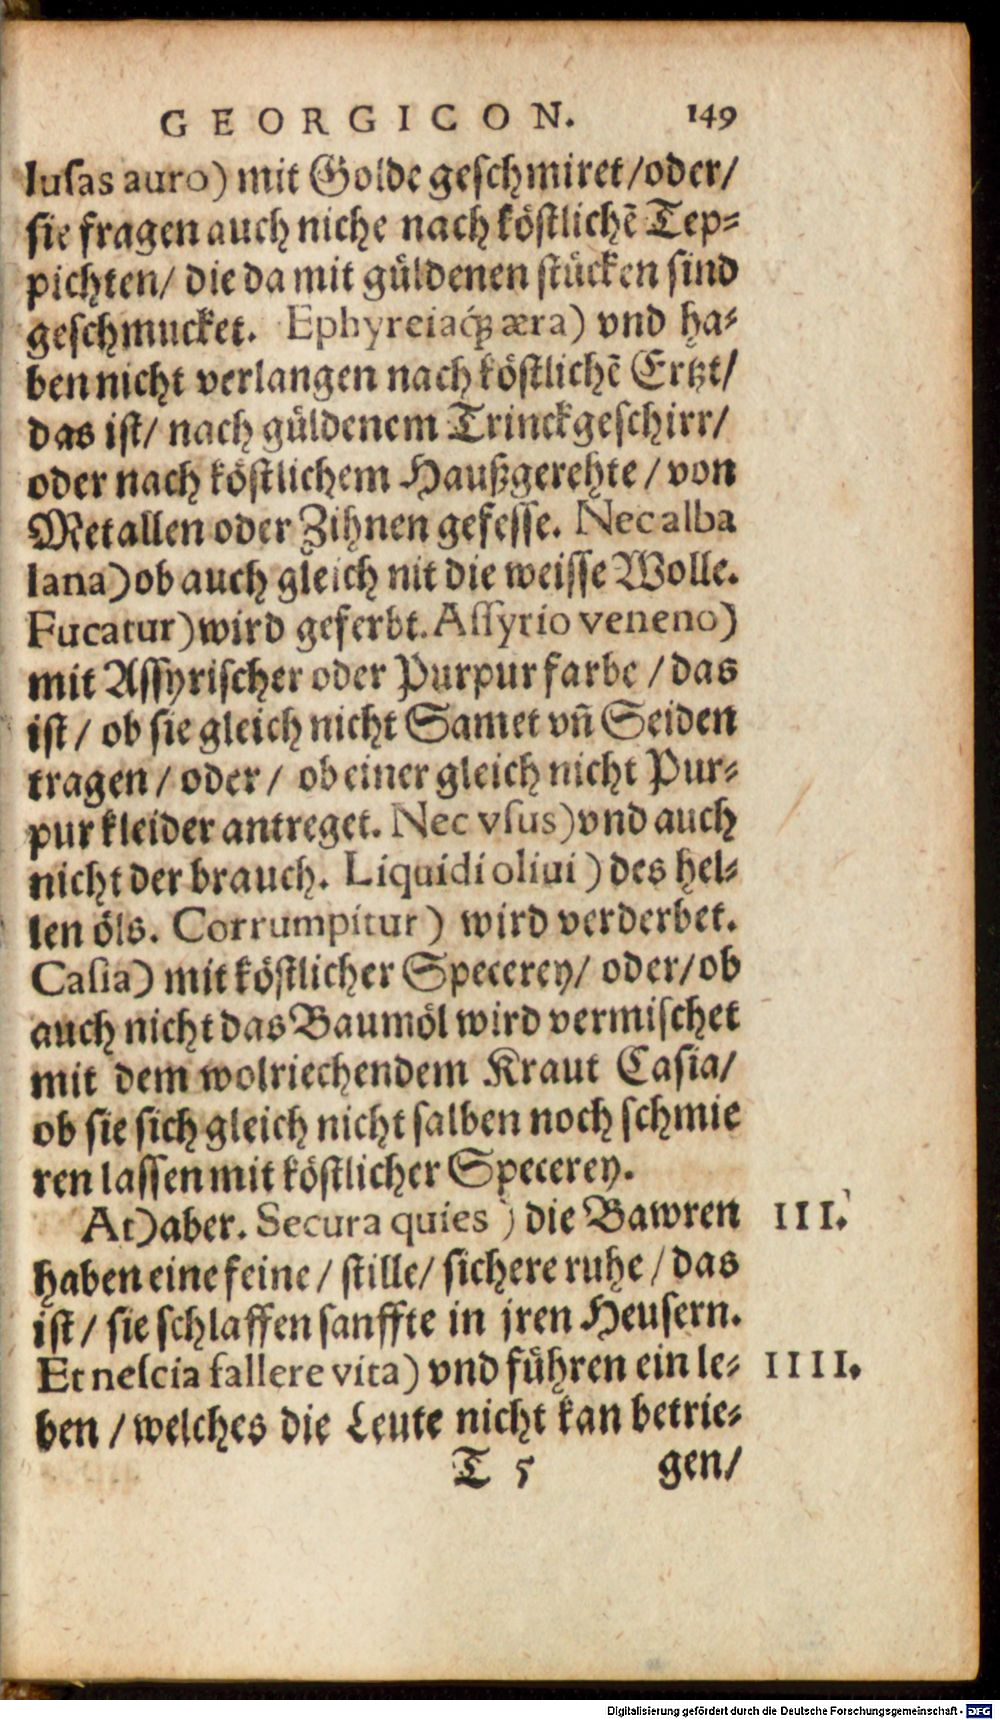 GEORGICON. 149
lusas auro) mit Golde geschmiret/oder/
sie fragen auch niche nach köstlichẽ Tep⸗
pichten/ die da mit güldenen stücken sind
geschmucket. Ephyreiaq́ꝫ æra) vnd ha⸗
ben nicht verlangen nach köstlichẽ Ertzt/
das ist/ nach güldenem Trinckgeschirr/
oder nach köstlichem Haußgerehte/ von
Metallen oder Zihnen gefesse. Nec alba
lana) ob auch gleich nit die weisse Wolle.
Fucatur) wird geferbt. Assyrio veneno)
mit Assyrischer oder Purpur farbe / das
ist/ ob sie gleich nicht Samet vñ Seiden
tragen/ oder/ ob einer gleich nicht Pur⸗
pur kleider antreget. Nec vsus) vnd auch
nicht der brauch. Liquidi oliui) des hel⸗
len öls. Corrumpitur) wird verderbet.
Casia) mit köstlicher Specerey/ oder/ ob
auch nicht das Baumöl wird vermischet
mit dem wolriechendem Kraut Casia/
ob sie sich gleich nicht salben noch schmie
ren lassen mit köstlicher Specerey.
At) aber. Secura quies) die Bawren III.
haben eine feine/ stille/ sichere ruhe/ das
ist/ sie schlaffen sanffte in jren Heusern.
Et nescia fallere vita) vnd führen ein le⸗ IIII.
ben/ welches die Leute nicht kan betrie⸗
T 5 gen/
Digitalisierung gefördert durch die Deutsche Forschungsgemeinschaft - DFG